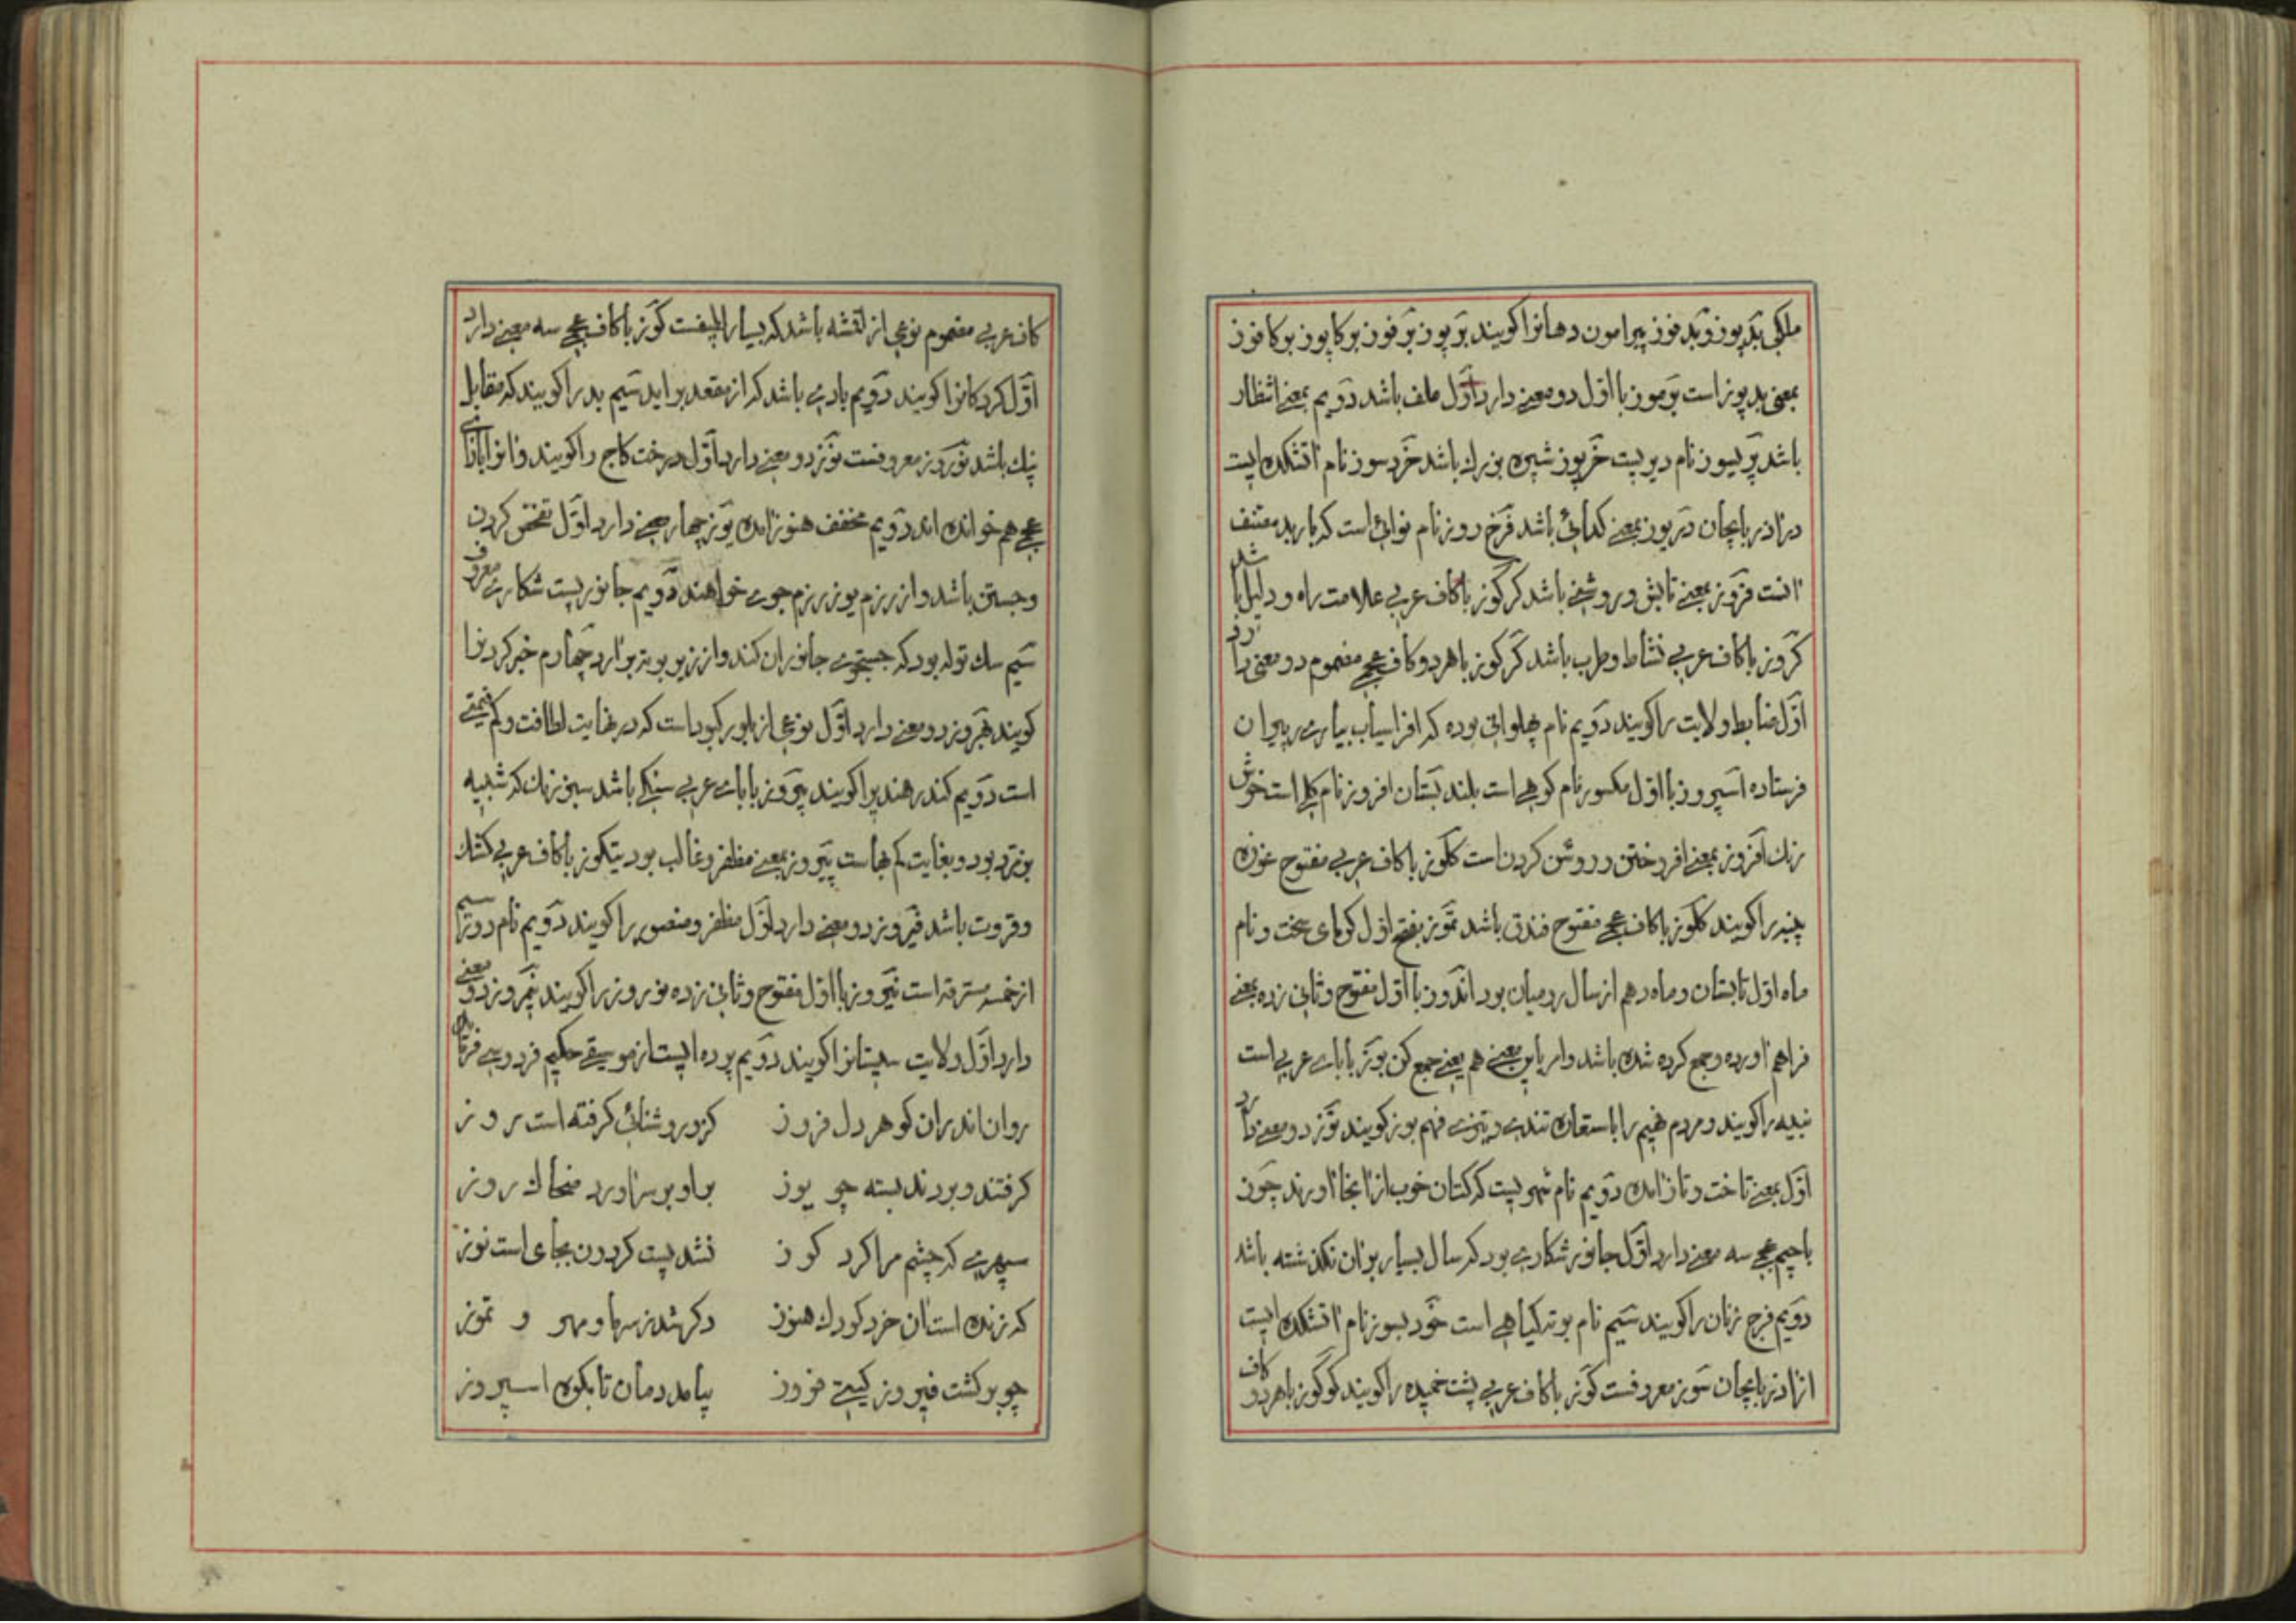 ملکی بدپوز و بدفوز پیرامون دهانرا کویند برپوز برفوز برکاپوز برکافوز
بمعنی بدپوز است برموز با اول دو معنی دارد اول ملف باشد دویم بمعنی انتظار
باشد پریسوز نام دیریست خرپوز شپره بزرك باشد خردسوز نام اتشکده ایست
در اذربایجان دریوز بمعنی کدائی باشد فرخ روز نام نوائی است که باربد مصنف
انست فروز بمعنی تابش و روشنی باشد کرکوز با کاف عربی علامت راه و دلیل باشد
کروز با کاف عربی نشاط و طرب باشد کرکوز با هر دو کاف عجمی مضموم دو معنی دارد
اول ضابط ولایت را کویند دویم نام پهلوانی بوده که افراسیاب بیاری پیران
فرستاده اسپروز با اول مکسور نام کوهی است بلند بستان افروز نام کلی است خوش
رنك افروز بمعنی افروختن و روشن کردن است کلوز با کاف عربی مفتوح غوزه
پنبه را کویند کلوز با کاف عجمی مفتوح فندق باشد تموز بفتح اول کرمای سخت و نام
ماه اول تابستان و ماه دهم از سال رومیان بود اندوز با اول مفتوح و ثانی زده بمعنی
فراهم اورده و جمع کرده شده باشد و امر باین معنی هم یعنی جمع کن بوز با بای عربی است
نیله را کویند و مردم فهیم را باستعاره تندی و تیزی فهم بوز کویند توز دو معنی دارد
اول بمعنی تاخت و تاز امده دویم نام شهریست که کتان خوب از انجا اورند چوز
با جیم عجمی سه معنی دارد اول جانور شکاری بود که سال بسیار بران نکذشته باشد
دویم فرج زنان را کویند سیم نام بوته کیاهی است خوردسوز نام اتشکده ایست
از اذربایجان سوز معروفست کوز با کاف عربی پشت خمیده را کویند کوکوز با هر دو کاف
کاف عربی مضموم نوعی از نقشه باشد که بسیار لطیفست کوز با کاف عجمی سه معنی دارد
اول کردکانرا کویند دویم بادی باشد که از مقعد براید سیم بد را کویند که مقابل
نیك باشد نوروز معروفست نوز دو معنی دارد اول درخت کاج را کویند و انرا با زای
عجمی هم خوانده اند دویم مخفف هنوز امده یوز چهار معنی دارد اول تفحص کردن
و جستن باشد و از رزم یوز رزم جوی خواهند دویم جانوریست شکاری معروف
سیم سك توله بود که جستجوی جانوران کند و از زیر بوته برارد چهارم خبر کردنرا
کویند بهروز دو معنی دارد اول نوعی از بلور کبود است که در نهایت لطافت و کم قیمتی
است دویم کندر هندیرا کویند بیروز با بای عربی سنکی باشد سبز رنك که شبیه
بزمرد بود و بغایت کم بهاست پیروز بمعنی مظفر و غالب بود یتکوز با کاف عربی کشك
و قروت باشد فیروز دو معنی دارد اول مظفر و منصور را کویند دویم نام روز سیم
از خمسه مسترقه است نیروز با اول مفتوح و ثانی زده نوروز را کویند نیمروز دو معنی
دارد اول ولایت سیستانرا کویند دویم پرده ایست از موسیقی حکیم فردوسی فرماید
روان اندران کوهر دل فروز کزو روشنائی کرفته است روز
کرفتند و بردند بسته چو یوز براو بر سراورد ضحاك روز
سپهری که چشم مرا کرد کوز نشد پست کردون بجای است نوز
که زنده است ان خرد کودك هنوز دکر شد ز سرما و مهر و تموز
چو برکشت فیروز کیتی فروز بیامد دمان تا بکوه اسپروز